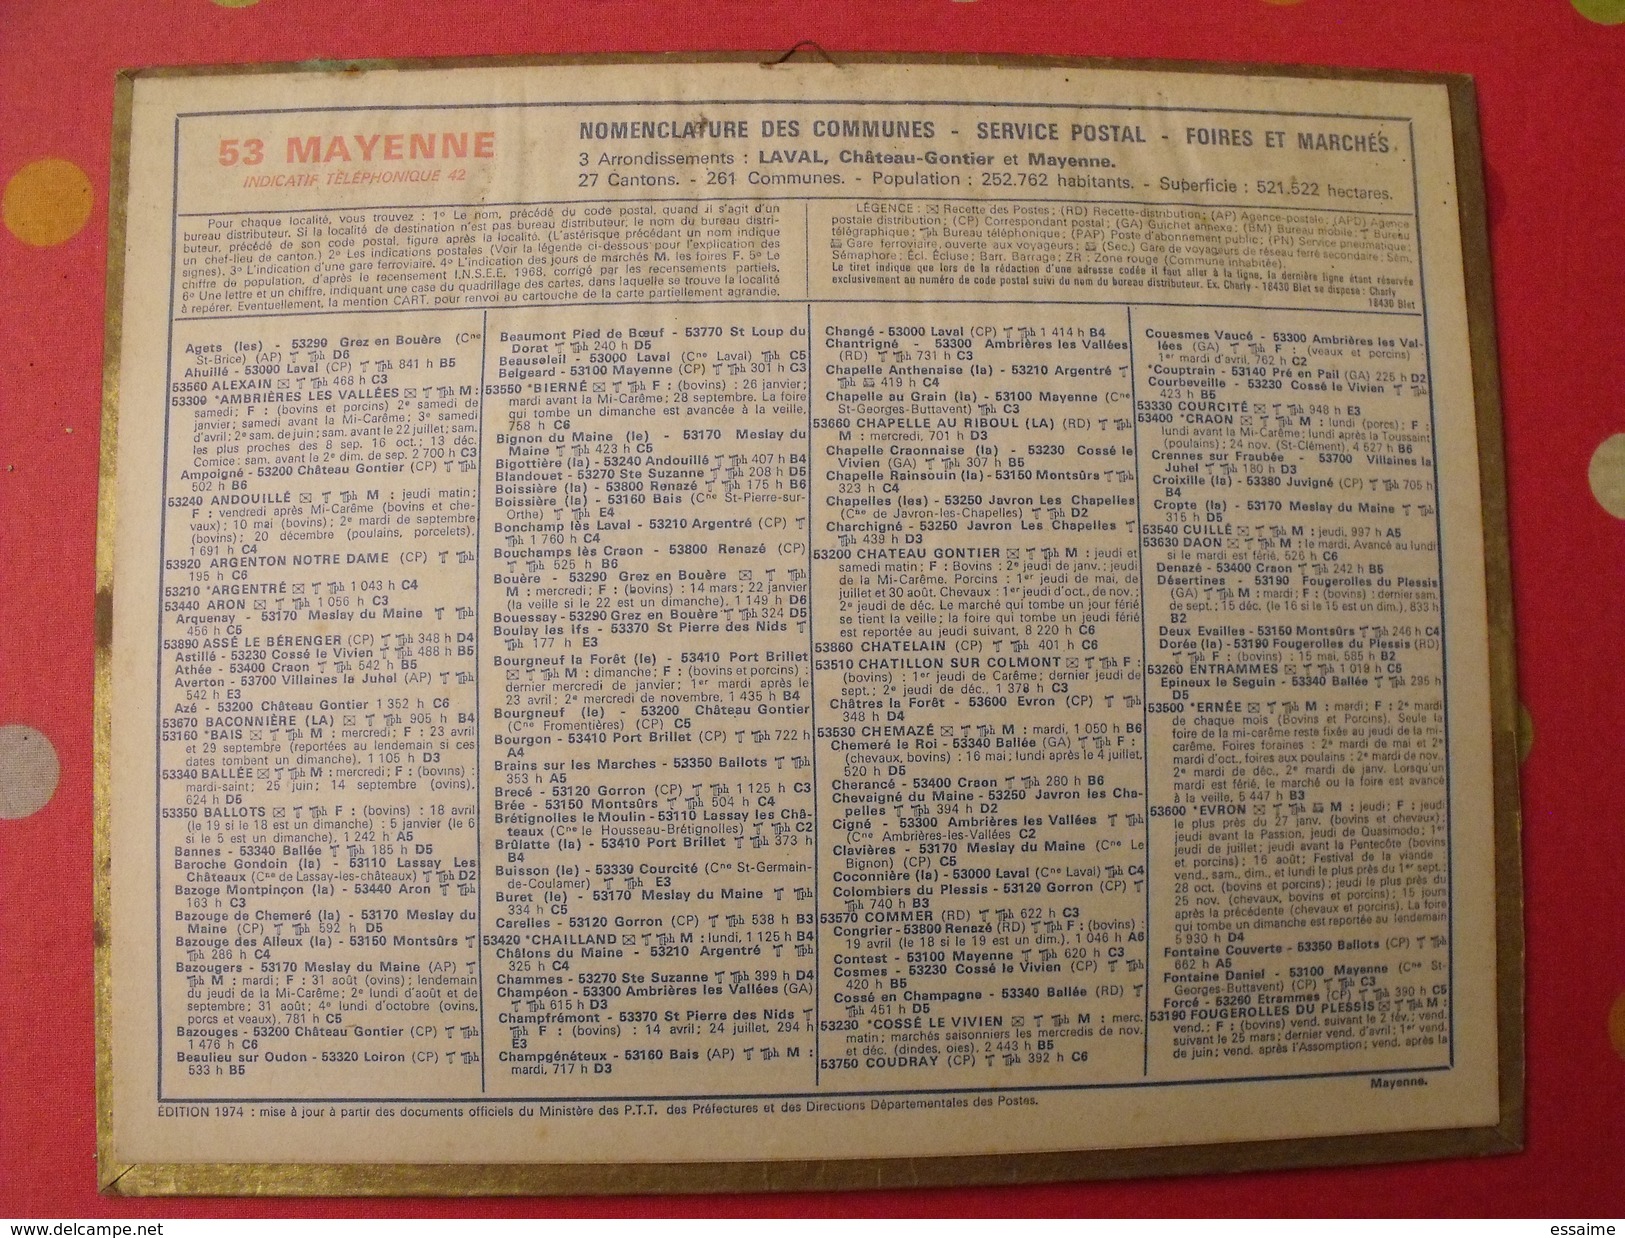 53 MAYENNE
INDICATIF TÉLÉPHONIQUE 42
NOMENCLATURE DES COMMUNES - SERVICE POSTAL - FOIRES ET MARCHÉS
3 Arrondissements : LAVAL, Château-Gontier et Mayenne.
27 Cantons. - 261 Communes. - Population : 252.762 habitants. - Superficie : 521.522 hectares.
Pour chaque localité, vous trouvez : 1º Le nom, précédé du code postal, quand il s'agit d'un
bureau distributeur. Si la localité de destination n'est pas bureau distributeur, le nom du bureau distri-
buteur, précédé de son code postal, figure après la localité. (L'astérisque précédant un nom indique
un chef-lieu de canton.) 2º Les indications postales (Voir la légende ci-dessous pour l'explication des
signes). 3º L'indication d'une gare ferroviaire. 4º L'indication des jours de marchés M. les foires F. 5º Le
chiffre de population, d'après le recensement I.N.S.E.E. 1968, corrigé par les recensements partiels.
6º Une lettre et un chiffre, indiquant une case du quadrillage des cartes, dans laquelle se trouve la localité
à repérer. Eventuellement, la mention CART. pour renvoi au cartouche de la carte partiellement agrandie.
LÉGENCE : ✉ Recette des Postes ; (RD) Recette-distribution ; (AP) Agence-postale ; (APD) Agence
postale distribution ; (CP) Correspondant postal ; (GA) Guichet annexe ; (BM) Bureau mobile ; T Bureau
télégraphique ; Tph Bureau téléphonique ; (PAP) Poste d'abonnement public ; (PN) Service pneumatique ;
Gare ferroviaire, ouverte aux voyageurs ; (Sec.) Gare de voyageurs de réseau ferré secondaire ; Sém.
Sémaphore ; Écl. Écluse ; Barr. Barrage ; ZR : Zone rouge (Commune inhabitée).
Le tiret indique que lors de la rédaction d'une adresse codée il faut aller à la ligne, la dernière ligne étant réservée
exclusivement au numéro de code postal suivi du nom du bureau distributeur. Ex. Charly - 18430 Blet se dispose : Charly
18430 Blet
Agets (les) - 53290 Grez en Bouère (Cne
St-Brice) (AP) T Tph D6
Ahuillé - 53000 Laval (CP) T Tph 841 h B5
53560 ALEXAIN ✉ T Tph 468 h C3
53300 *AMBRIÈRES LES VALLÉES ✉ T Tph M :
samedi ; F : (bovins et porcins) 2e samedi de
janvier ; samedi avant la Mi-Carême ; 3e samedi
d'avril ; 2e sam. de juin ; sam. avant le 22 juillet ; sam.
les plus proches des 8 sep. 16 oct. ; 13 déc.
Comice : sam. avant le 2e dim. de sep. 2 700 h C3
Ampoigné - 53200 Château Gontier (CP) T Tph
502 h B6
53240 ANDOUILLÉ ✉ T Tph M : jeudi matin ;
F : vendredi après Mi-Carême (bovins et che-
vaux) ; 10 mai (bovins) ; 2e mardi de septembre
(bovins) ; 20 décembre (poulains, porcelets).
1 691 h C4
53920 ARGENTON NOTRE DAME (CP) T Tph
195 h C6
53210 *ARGENTRÉ ✉ T Tph 1 043 h C4
53440 ARON ✉ T Tph 1 056 h C3
Arquenay - 53170 Meslay du Maine T Tph
456 h C5
53890 ASSÉ LE BÉRENGER (CP) T Tph 348 h D4
Astillé - 53230 Cossé le Vivien T Tph 488 h B5
Athée - 53400 Craon T Tph 542 h B5
Averton - 53700 Villaines la Juhel (AP) T Tph
542 h E3
Azé - 53200 Château Gontier 1 352 h C6
53670 BACONNIÈRE (LA) ✉ T Tph 905 h B4
53160 *BAIS ✉ T Tph M : mercredi ; F : 23 avril
et 29 septembre (reportées au lendemain si ces
dates tombent un dimanche). 1 105 h D3
53340 BALLÉE ✉ T Tph M : mercredi ; F : (bovins) :
mardi-saint ; 25 juin ; 14 septembre (ovins).
624 h D5
53350 BALLOTS ✉ T Tph F : (bovins) : 18 avril
(le 19 si le 18 est un dimanche) ; 5 janvier (le 6
si le 5 est un dimanche). 1 242 h A5
Bannes - 53340 Ballée T Tph 185 h D5
Baroche Gondoin (la) - 53110 Lassay Les
Châteaux (Cne de Lassay-les-châteaux) T Tph D2
Bazoge Montpinçon (la) - 53440 Aron T Tph
163 h C3
Bazouge de Chemeré (la) - 53170 Meslay du
Maine (CP) T Tph 592 h D5
Bazouge des Alleux (la) - 53150 Montsûrs T
Tph 286 h C4
Bazougers - 53170 Meslay du Maine (AP) T
Tph M : mardi ; F : 31 août (ovins) ; lendemain
du jeudi de la Mi-Carême ; 2e lundi d'août et de
septembre ; 31 août ; 4e lundi d'octobre (ovins,
porcs et veaux). 781 h C5
Bazouges - 53200 Château Gontier (CP) T Tph
1 476 h C6
Beaulieu sur Oudon - 53320 Loiron (CP) T Tph
533 h B5
Beaumont Pied de Bœuf - 53770 St Loup du
Dorat T Tph 240 h D5
Beausoleil - 53000 Laval (Cne Laval) Tph C5
Belgeard - 53100 Mayenne (CP) T Tph 301 h C3
53550 *BIERNÉ ✉ T Tph F : (bovins) : 26 janvier ;
mardi avant la Mi-Carême ; 28 septembre. La foire
qui tombe un dimanche est avancée à la veille.
758 h C6
Bignon du Maine (le) - 53170 Meslay du
Maine T Tph 423 h C5
Bigottière (la) - 53240 Andouillé T Tph 407 h B4
Blandouet - 53270 Ste Suzanne T Tph 208 h D5
Boissière (la) - 53800 Renazé T Tph 175 h B6
Boissière (la) - 53160 Bais (Cne St-Pierre-sur-
Orthe) T Tph E4
Bonchamp lès Laval - 53210 Argentré (CP) T
Tph 1 760 h C4
Bouchamps lès Craon - 53800 Renazé (CP)
T Tph 525 h B6
Bouère - 53290 Grez en Bouère ✉ T Tph
M : mercredi ; F : (bovins) : 14 mars ; 22 janvier
(la veille si le 22 est un dimanche). 1 149 h D6
Bouessay - 53290 Grez en Bouère T Tph 324 D5
Boulay les Ifs - 53370 St Pierre des Nids T
Tph 177 h E3
Bourgneuf la Forêt (le) - 53410 Port Brillet
✉ T Tph M : dimanche ; F : (bovins et porcins) :
dernier mercredi de janvier ; 1er mardi après le
23 avril ; 2e mercredi de novembre. 1 435 h B4
Bourgneuf (le) - 53200 Château Gontier
(Cne Fromentières) (CP) C5
Bourgon - 53410 Port Brillet (CP) T Tph 722 h
A4
Brains sur les Marches - 53350 Ballots T Tph
353 h A5
Brecé - 53120 Gorron (CP) T Tph 1 125 h C3
Brée - 53150 Montsûrs T Tph 504 h C4
Brétignolles le Moulin - 53110 Lassay les Châ-
teaux (Cne le Housseau-Brétignolles) T Tph C2
Brûlatte (la) - 53410 Port Brillet T Tph 373 h
B4
Buisson (le) - 53330 Courcité (Cne St-Germain-
de-Coulamer) T Tph E3
Buret (le) - 53170 Meslay du Maine T Tph
334 h C5
Carelles - 53120 Gorron (CP) T Tph 538 h B3
53420 *CHAILLAND ✉ T Tph M : lundi, 1 125 h B4
Châlons du Maine - 53210 Argentré T Tph
325 h C4
Chammes - 53270 Ste Suzanne T Tph 399 h D4
Champéon - 53300 Ambrières les Vallées (GA)
T Tph 615 h D3
Champfrémont - 53370 St Pierre des Nids T
Tph F : (bovins) : 14 avril ; 24 juillet, 294 h
E3
Champgénéteux - 53160 Bais (AP) T Tph M :
mardi, 717 h D3
Changé - 53000 Laval (CP) T Tph 1 414 h B4
Chantrigné - 53300 Ambrières les Vallées
(RD) T Tph 731 h C3
Chapelle Anthenaise (la) - 53210 Argentré T
Tph 419 h C4
Chapelle au Grain (la) - 53100 Mayenne (Cne
St-Georges-Buttavent) Tph C3
53660 CHAPELLE AU RIBOUL (LA) (RD) T Tph
M : mercredi, 701 h D3
Chapelle Craonnaise (la) - 53230 Cossé le
Vivien (GA) T Tph 307 h B5
Chapelle Rainsouin (la) - 53150 Montsûrs T Tph
323 h C4
Chapelles (les) - 53250 Javron Les Chapelles
(Cne de Javron-les-Chapelles) T D2
Charchigné - 53250 Javron Les Chapelles T
Tph 439 h D3
53200 CHATEAU GONTIER ✉ T Tph M : jeudi et
samedi matin ; F : Bovins : 2e jeudi de janv. ; jeudi
de la Mi-Carême. Porcins : 1er jeudi de mai, de
juillet et 30 août. Chevaux : 1er jeudi d'oct., de nov. ;
2e jeudi de déc. Le marché qui tombe un jour férié
se tient la veille ; la foire qui tombe un jeudi férié
est reportée au jeudi suivant. 8 220 h C6
53860 CHATELAIN (CP) T Tph 401 h C6
53510 CHATILLON SUR COLMONT ✉ T Tph F :
(bovins) : 1er jeudi de Carême ; dernier jeudi de
sept. ; 2e jeudi de déc.. 1 378 h C3
Châtres la Forêt - 53600 Evron (CP) T Tph
348 h D4
53530 CHEMAZÉ ✉ T Tph M : mardi, 1 050 h B6
Chemeré le Roi - 53340 Ballée (GA) T Tph F :
(chevaux, bovins) : 16 mai ; lundi après le 4 juillet.
520 h D5
Cherancé - 53400 Craon T Tph 280 h B6
Chevaigné du Maine - 53250 Javron les Cha-
pelles T Tph 394 h D2
Cigné - 53300 Ambrières les Vallées T Tph
(Cne Ambrières-les-Vallées C2
Clavières - 53170 Meslay du Maine (Cne Le
Bignon) (CP) C5
Coconnière (la) - 53000 Laval (Cne Laval) Tph C4
Colombiers du Plessis - 53120 Gorron (CP) T
Tph 740 h B3
53570 COMMER (RD) T Tph 622 h C3
Congrier - 53800 Renazé (RD) T Tph F : (bovins) :
19 avril (le 18 si le 19 est un dim.). 1 046 h A6
Contest - 53100 Mayenne T Tph 620 h C3
Cosmes - 53230 Cossé le Vivien (CP) T Tph
420 h B5
Cossé en Champagne - 53340 Ballée (RD) T
Tph 451 h D5
53230 *COSSÉ LE VIVIEN ✉ T Tph M : merc.
matin ; marchés saisonniers les mercredis de nov.
et déc. (dindes, oies). 2 443 h B5
53750 COUDRAY (CP) T Tph 392 h C6
Couesmes Vaucé - 53300 Ambrières les Val-
lées (GA) T Tph F : (veaux et porcins) :
1er mardi d'avril. 762 h C2
*Couptrain - 53140 Pré en Pail (GA) 225 h D2
Courbeveille - 53230 Cossé le Vivien T Tph
423 h B5
53330 COURCITÉ ✉ T Tph 948 h E3
53400 *CRAON ✉ T Tph M : lundi (porcs) ; F :
lundi avant la Mi-Carême ; lundi après la Toussaint
(poulains) ; 24 nov. (St-Clément). 4 527 h B6
Crennes sur Fraubée - 53700 Villaines la
Juhel T Tph 180 h D3
Croixille (la) - 53380 Juvigné (CP) T Tph 705 h
B4
Cropte (la) - 53170 Meslay du Maine T Tph
315 h D5
53540 CUILLÉ ✉ T Tph M : jeudi, 997 h A5
53630 DAON ✉ T Tph M : le mardi. Avancé au lundi
si le mardi est férié, 526 h C6
Denazé - 53400 Craon T Tph 242 h B5
Désertines - 53190 Fougerolles du Plessis
(GA) T Tph M : mardi ; F : (bovins) : dernier sam.
de sept. ; 15 déc. (le 16 si le 15 est un dim.). 833 h
B2
Deux Evailles - 53150 Montsûrs T Tph 246 h C4
Dorée (la) - 53190 Fougerolles du Plessis (RD)
T Tph F : (bovins) : 15 mai, 585 h B2
53260 ENTRAMMES ✉ T Tph 1 019 h C5
Epineux le Seguin - 53340 Ballée T Tph 295 h
D5
53500 *ERNÉE ✉ T Tph M : mardi ; F : 2e mardi
de chaque mois (Bovins et Porcins). Seule la
foire de la mi-carême reste fixée au jeudi de la mi-
carême. Foires foraines : 2e mardi de mai et 2e
mardi d'oct., foires aux poulains : 2e mardi de nov.,
2e mardi de déc., 2e mardi de janv. Lorsqu'un
mardi est férié, le marché ou la foire est avancé
à la veille, 5 447 h B3
53600 *EVRON ✉ T Tph M : jeudi ; F : jeudi
le plus près du 27 janv. (bovins et chevaux) ;
jeudi avant la Passion, jeudi de Quasimodo ; 1er
jeudi de juillet ; jeudi avant la Pentecôte (bovins
et porcins) ; 16 août ; Festival de la viande :
vend., sam., dim., et lundi le plus près du 1er sept. ;
28 oct. (bovins et porcins) ; jeudi le plus près du
25 nov. (chevaux, bovins et porcins) ; 15 jours
après la précédente (chevaux et porcins). La foire
qui tombe un dimanche est reportée au lendemain
5 930 h D4
Fontaine Couverte - 53350 Ballots (CP) T Tph
662 h A5
Fontaine Daniel - 53100 Mayenne (Cne St-
Georges-Buttavent) (CP) T Tph C3
Forcé - 53260 Etrammes (CP) T Tph 390 h C5
53190 FOUGEROLLES DU PLESSIS ✉ T Tph M :
vend. ; F : (bovins) vend. suivant le 2 fév. ; vend.
suivant le 25 mars ; dernier vend. d'avril ; 1er vend.
de juin ; vend. après l'Assomption ; vend. après la
Mayenne.
ÉDITION 1974 : mise à jour à partir des documents officiels du Ministère des P.T.T. des Préfectures et des Directions Départementales des Postes.
www.delcampe.net
essaime